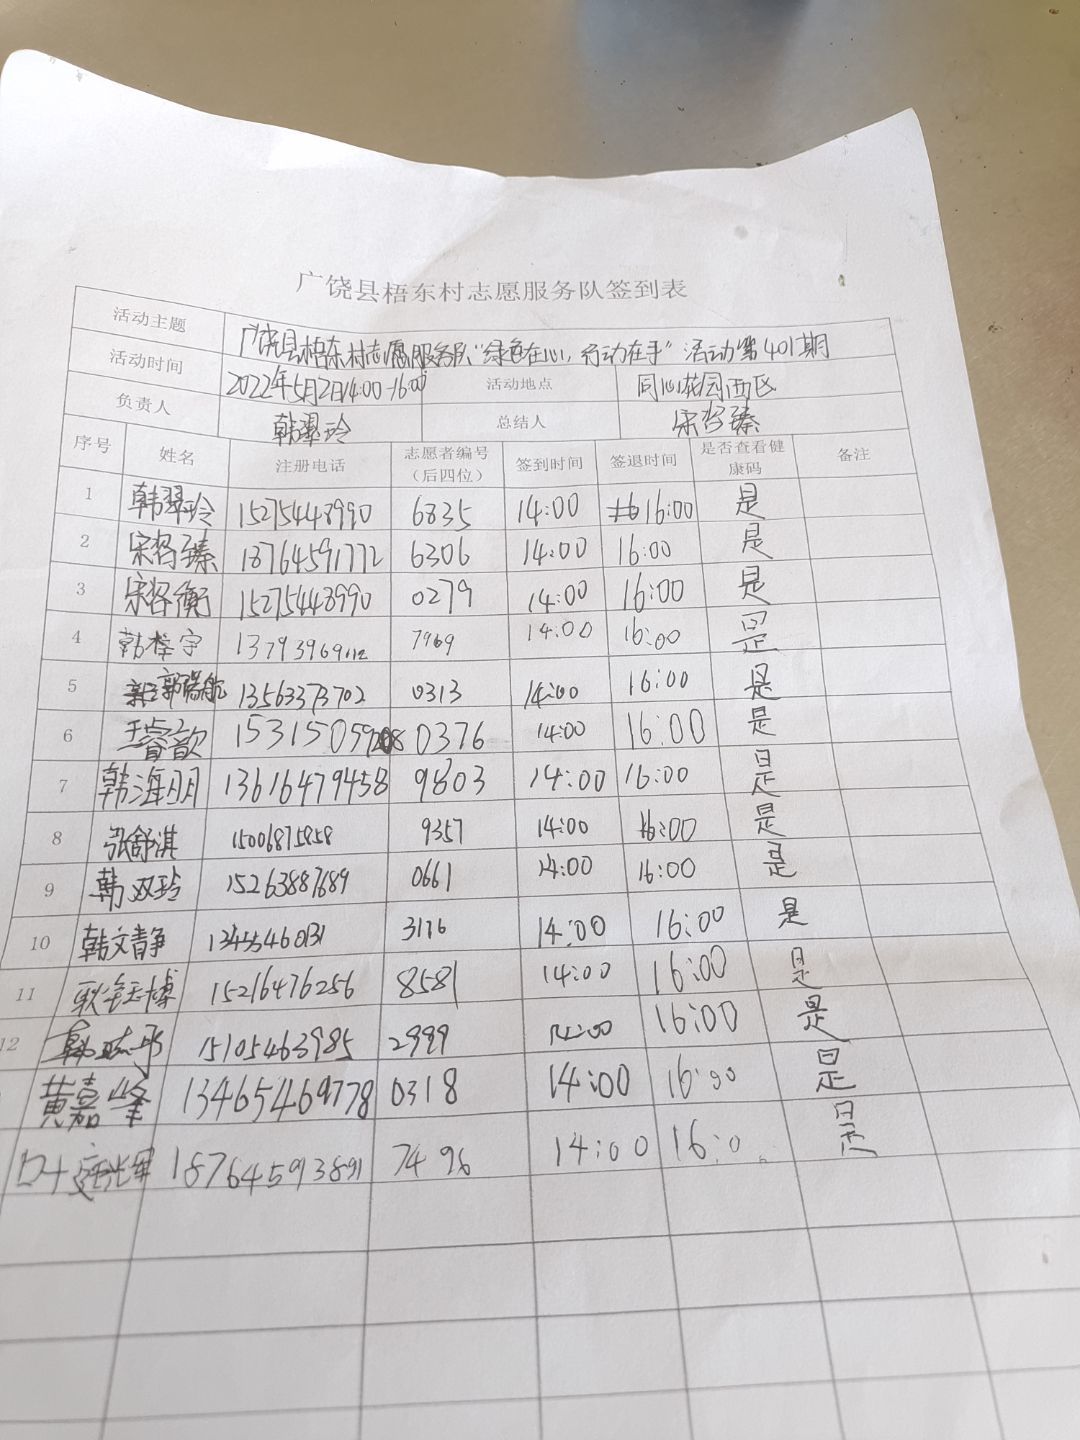 广饶县梧东村志愿服务队签到表
活动主题 广饶县梧东村志愿服务队“绿色在心，行动在手”活动第401期
活动时间 2022年5月2日14:00-16:00 活动地点 同心花园西区
负责人 韩翠玲 总结人 宋容臻
序号 姓名 注册电话 志愿者编号（后四位） 签到时间 签退时间 是否查看健康码 备注
1 韩翠玲 15275448990 6835 14:00 16:00 是
2 宋容臻 18764591772 6306 14:00 16:00 是
3 宋容衡 15275448990 0279 14:00 16:00 是
4 韩梓宇 7969 14:00 16:00 是
5 郭瑞航 13563373702 0313 14:00 16:00 是
6 王睿歆 0376 14:00 16:00 是
7 韩海明 13616479458 9803 14:00 16:00 是
8 张舒淇 15006875858 9357 14:00 16:00 是
9 韩双玲 15263887689 0661 14:00 16:00 是
10 韩文静 13455460131 3176 14:00 16:00 是
11 15216476256 8581 14:00 16:00 是
12 15105463985 2999 14:00 16:00 是
黄嘉峰 13465469778 0318 14:00 16:00 是
18764593891 7496 14:00 16:0 是